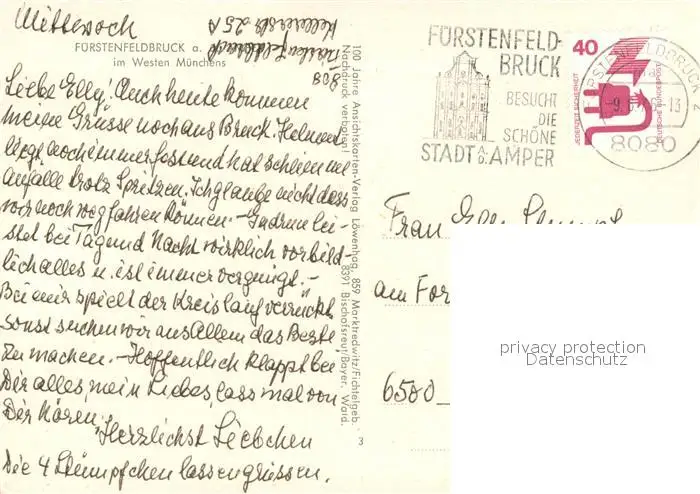 Mittwoch
FÜRSTENFELDBRUCK a.
im Westen Münchens
Fürstenfeldbruck
808
Liebe Elly! Auch heute kommen
meine Grüsse noch aus Bruck. Helmut
liegt noch immer fest und hat schlimme
Anfälle trotz Spritzen. Ich glaube nicht dass
wir noch wegfahren können. – Gudrun lei-
stet bei Tag und Nacht wirklich vorbild-
lich alles u. ist immer vergnügt. –
Bei mir spielt der Kreislauf verrückt.
Sonst suchen wir aus Allem das Beste
zu machen. – Hoffentlich klappt bei
Dir alles, mein Liebes, lass mal von
Dir hören. Herzlichst Liebchen
Die 4 Stümpfchen lassen grüssen.
100 Jahre Ansichtskarten-Verlag Löwenhag, 859 Marktredwitz/Fichtelgeb.
Nachdruck verboten! 8391 Bischofsreut/Bayer. Wald.
3
FÜRSTENFELD-
BRUCK
BESUCHT
DIE
SCHÖNE
STADT A. D. AMPER
40
JEDERZEIT SICHERHEIT
DEUTSCHE BUNDESPOST
FÜRSTENFELDBRUCK
8080
Frau Elly
am For
6500
privacy protection
Datenschutz